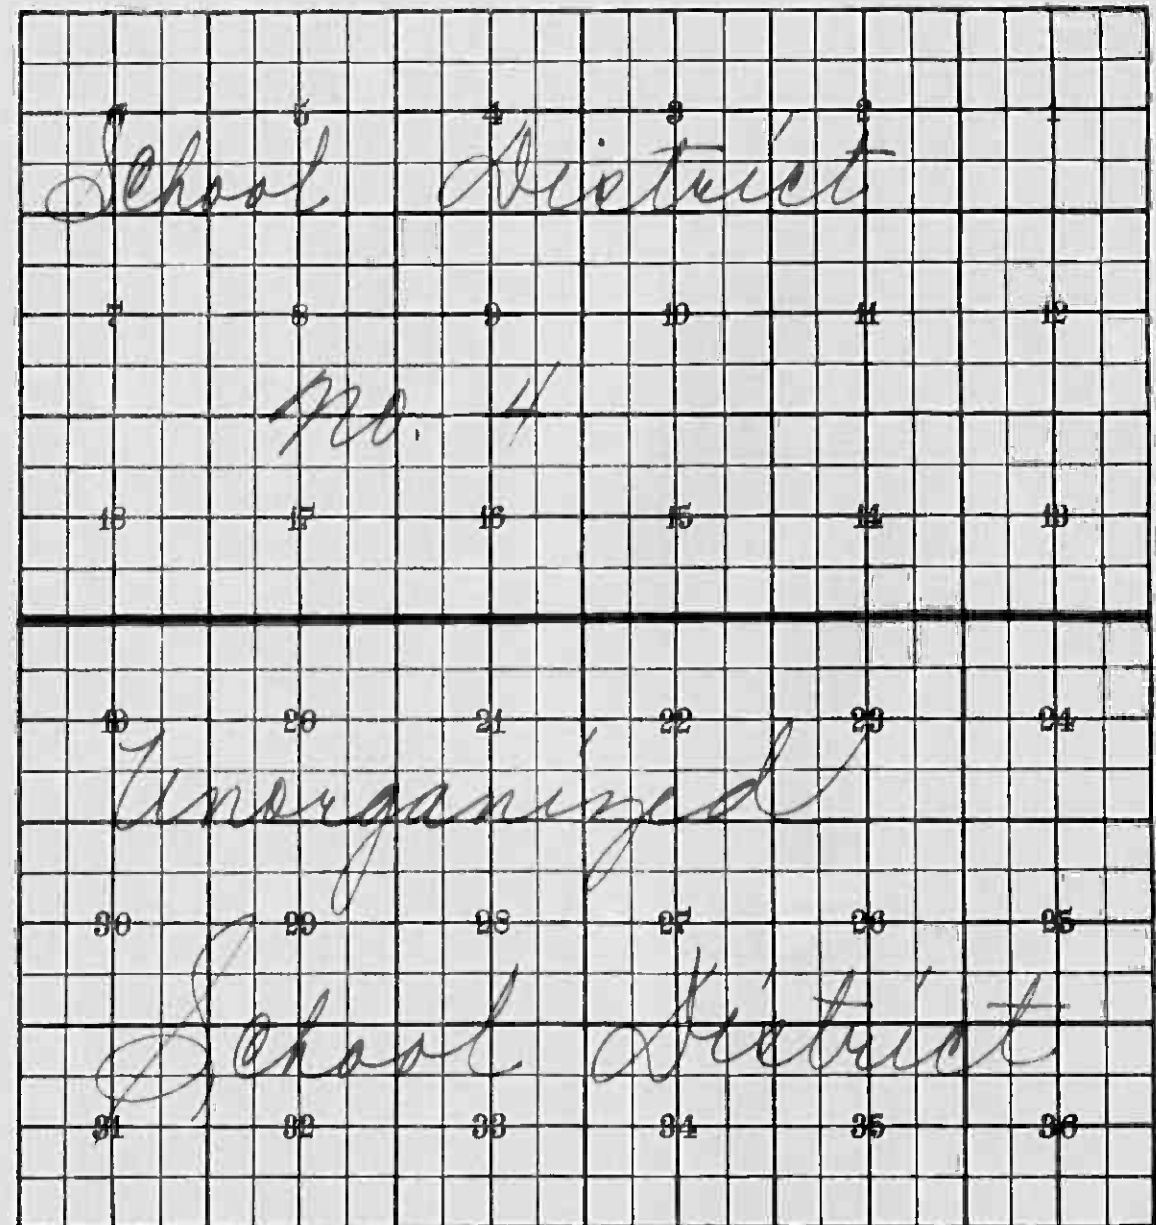 6 5 4 3 2 1
School District
7 8 9 10 11 12
No. 4
18 17 16 15 14 13
19 20 21 22 23 24
Unorganized
30 29 28 27 26 25
School District
31 32 33 34 35 36